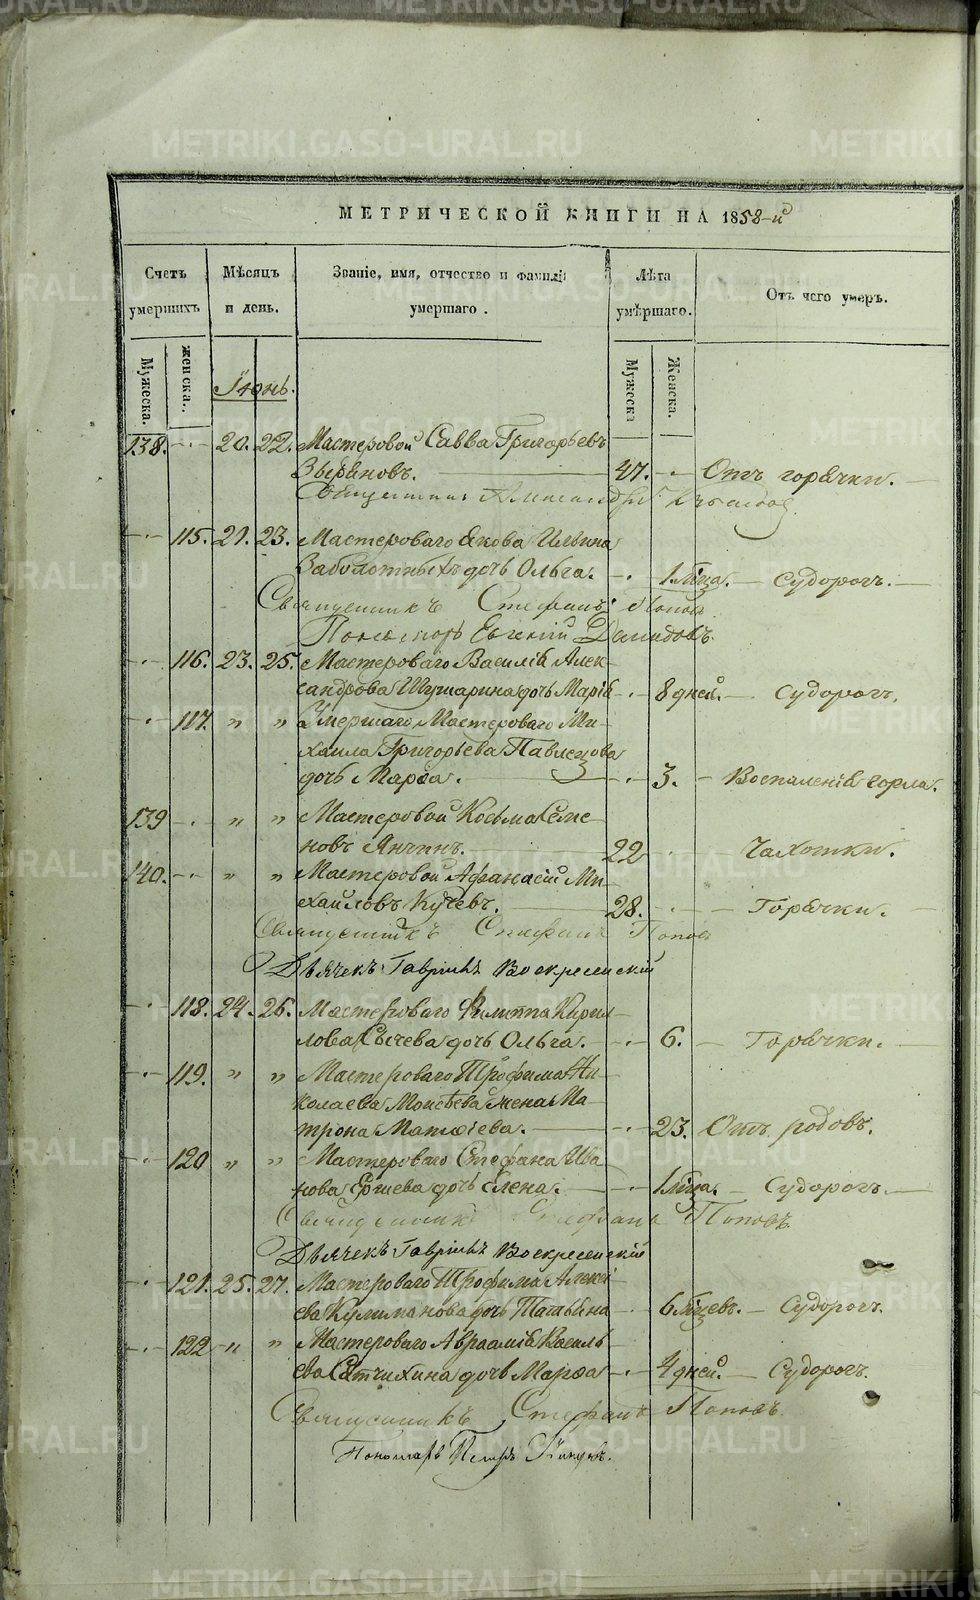 METRIKI.GASO-URAL.RU
МЕТРИЧЕСКОЙ КНИГИ НА 1858-й
Счетъ умершихъ
Мѣсяцъ и день.
Званіе, имя, отчество и фамилія умершаго.
Лѣта умѣршаго.
Отъ чего умеръ.
Мужеска. Женска. Мужеска Женска.
Іюнь.
138. 20. 22. Мастеровой Савва Григорьевъ
Зыряновъ. 47. Отъ горячки.
Священникъ Александръ
115. 21. 23. Мастероваго Якова Ильина
Заболотныхъ дочь Ольга. 1 мѣца. Судорогъ.
Священникъ Стефанъ Поповъ
Пономарь Евгеній Демидовъ.
116. 23. 25. Мастероваго Василія Алек-
сандрова Шушарина дочь Марія 8 дней. Судорогъ.
117. " " Умершаго Мастероваго Ми-
хаила Григорьева Павлецова
дочь Марѳа. 3. Воспаленія горла.
139 " " Мастеровой Косьма Семе-
новъ Янчинъ. 22 Чахотки.
140. " " Мастеровой Афанасій Ми-
хайловъ Кучевъ. 28. Горячки.
Священникъ Стефанъ Поповъ
Дьячекъ Гавріилъ Воскресенскій
118. 24. 26. Мастероваго Филиппа Кирил-
лова Сычева дочь Ольга. 6. Горячки.
119. " " Мастероваго Трофима Ни-
колаева Моисѣева жена Ма-
трона Матѳѣева. 23. Отъ родовъ.
120 " " Мастероваго Стефана Ива-
нова Ершева дочь Елена. 1 мѣца. Судорогъ.
Священникъ Стефанъ Поповъ
Дьячекъ Гавріилъ Воскресенскій
121. 25. 27. Мастероваго Трофима Алексі-
ева Кулиманова дочь Татьяна 6 мѣцевъ. Судорогъ.
122 " " Мастероваго Авраамія Василь-
ева Сатчихина дочь Марѳа 4 дней. Судорогъ.
Священникъ Стефанъ Поповъ
Пономарь Петръ